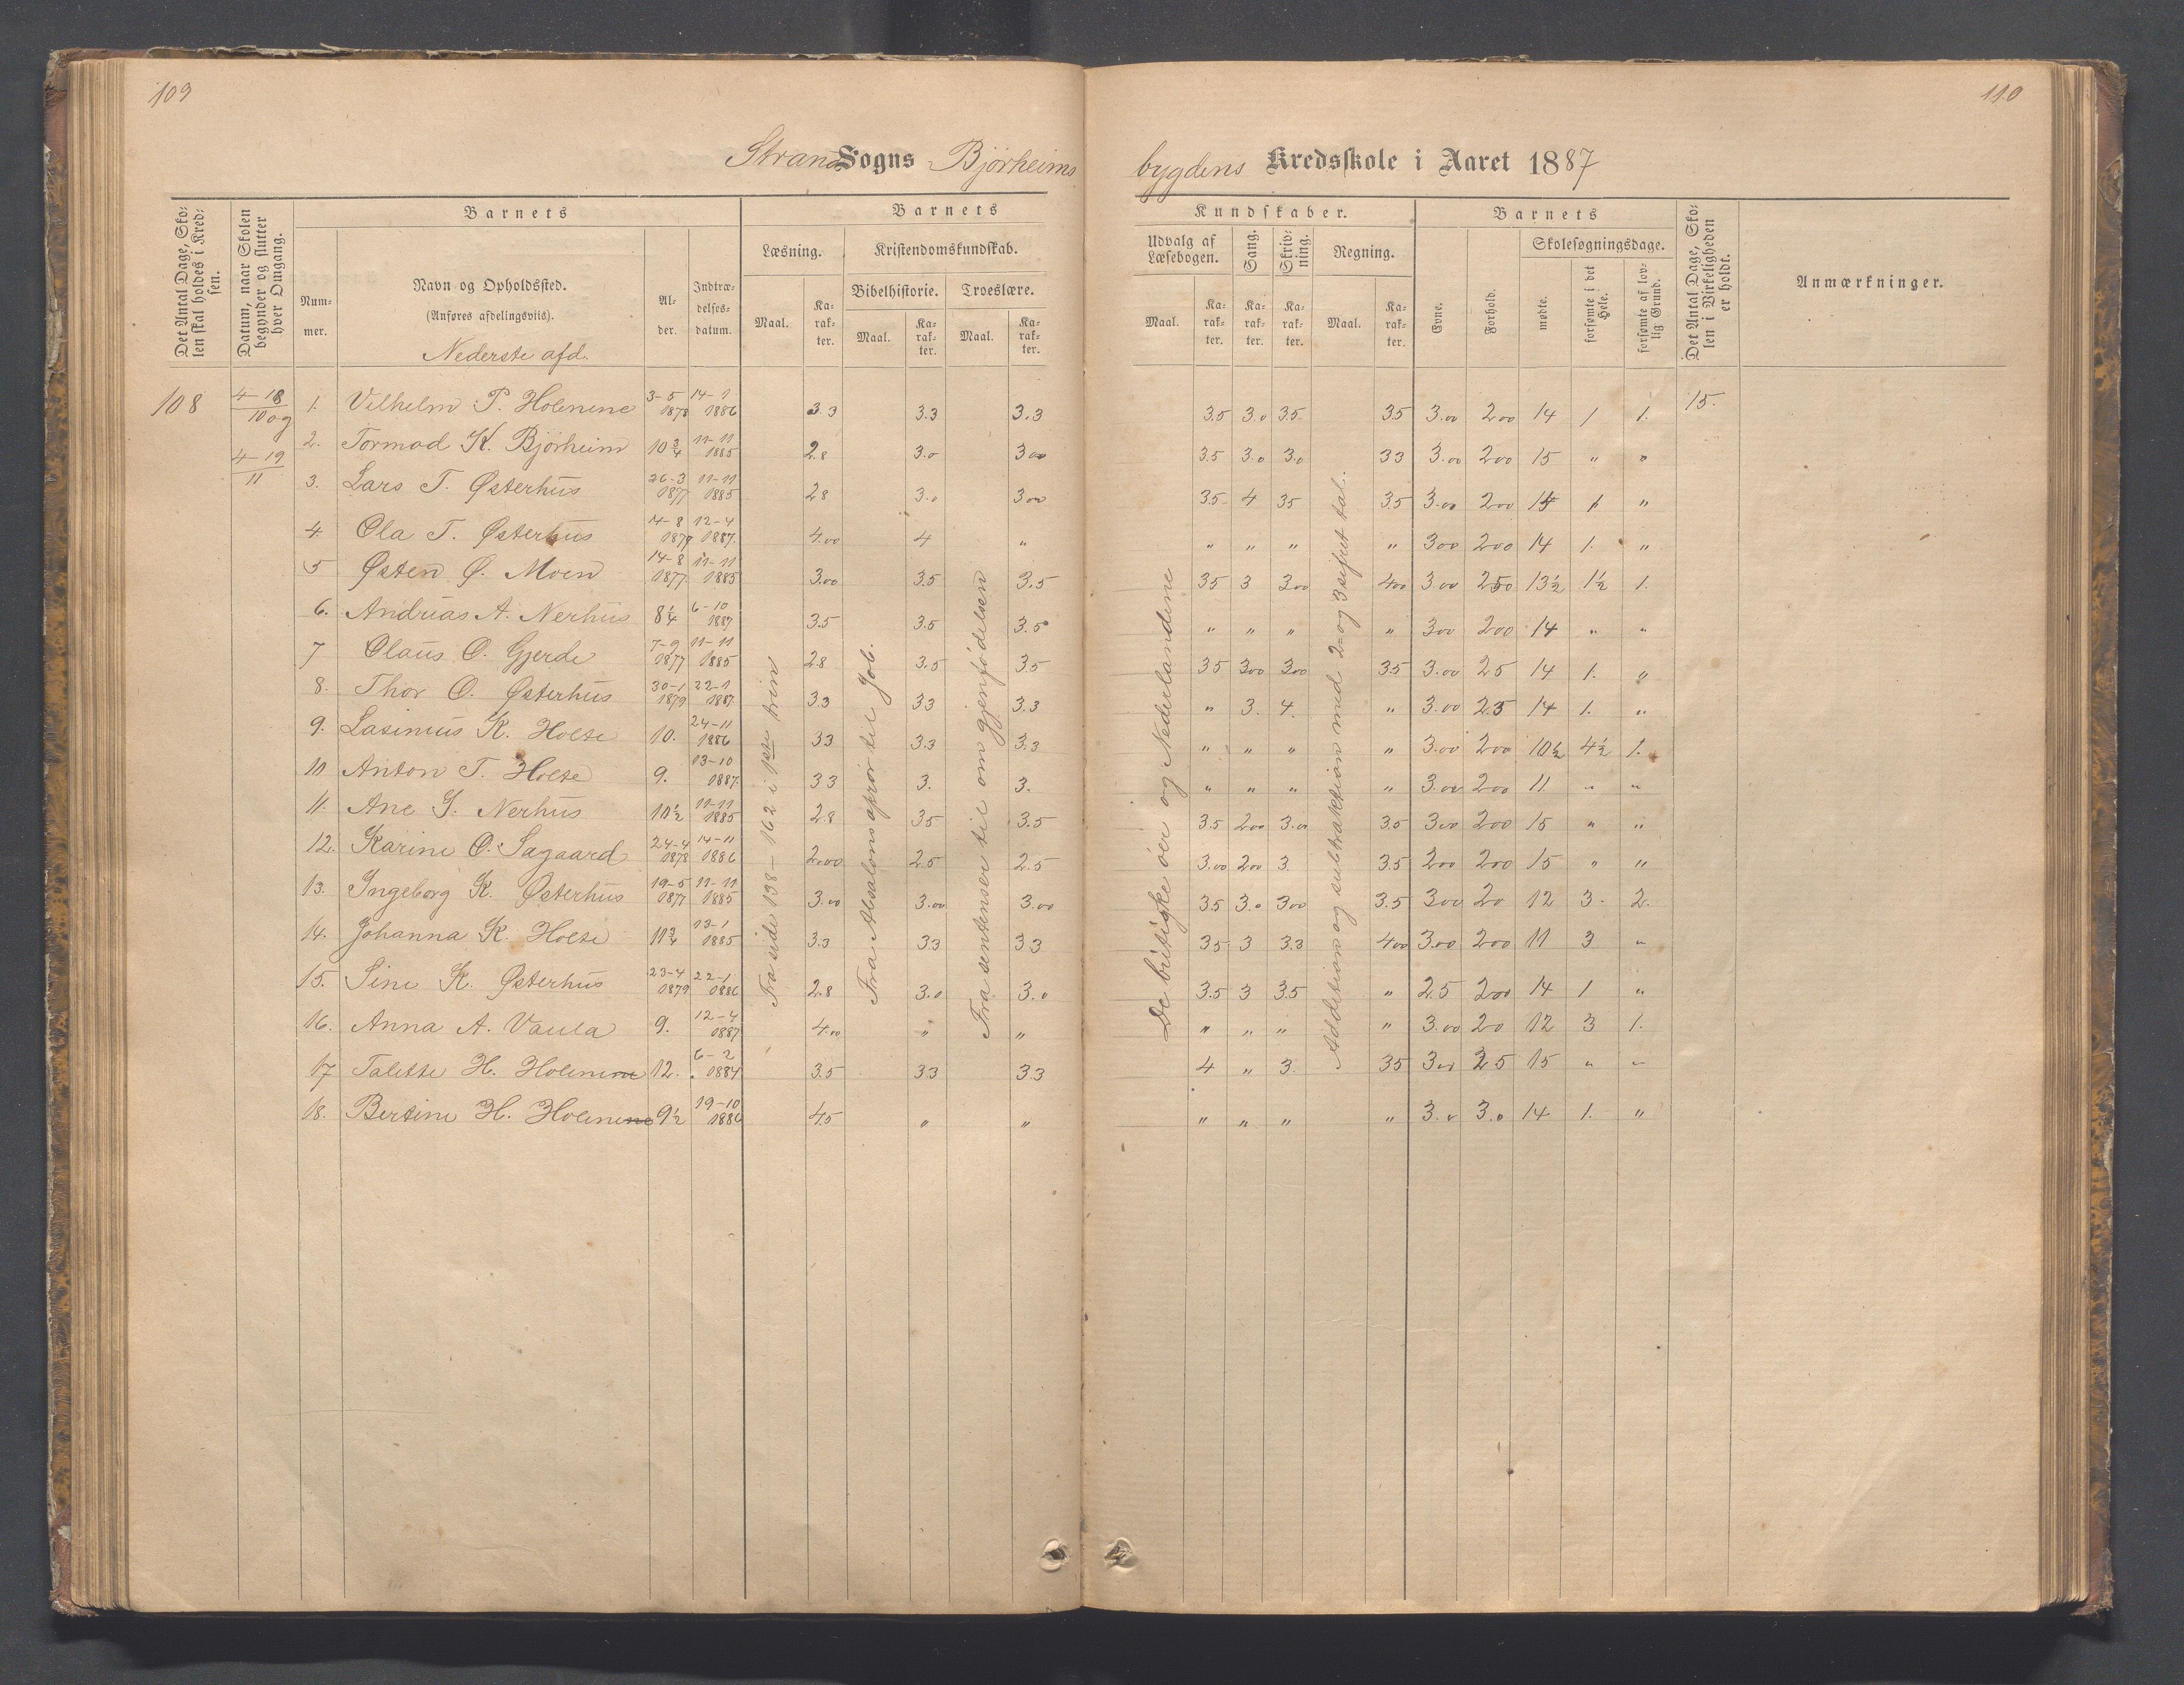 109
110
Strand Sogns Bjørheims
bygdens Kredsskole i Aaret 1887
Det Antal Dage, Skolen skal holdes i Kredsen.
Datum, naar Skolen begynder og slutter hver Omgang.
Barnets
Nummer.
Navn og Opholdssted.
(Anføres afdelingsviis).
Nederste afd.
Alder.
Indtrædelsesdatum.
Barnets
Læsning.
Maal.
Karakter.
Kristendomskundskab.
Bibelhistorie.
Maal.
Karakter.
Troeslære.
Maal.
Karakter.
Kundskaber.
Udvalg af Læsebogen.
Maal.
Karakter.
Sang.
Karakter.
Skrivning.
Karakter.
Regning.
Maal.
Karakter.
Barnets
Evne.
Forhold.
Skolesøgningsdage.
mødte.
forsømte i det Hele.
forsømte af lovlig Grund.
Det Antal Dage, Skolen i Virkeligheden er holdt.
Anmærkninger.
108
4-18/10 og
4-19/11
Fra side 138-162 i 1ste trin
Fra Absalons oprør til Job.
Fra sentenser til om gjenfødelsen
De britiske øer og Nederlandene
Addition og subtraktion med 2- og 3sifret tal.
1. Vilhelm P. Holenene 3-5 1878 14-1 1886 3.3 3.3 3.3 3.5 3.0 3.5 3.5 3.00 200 14 1 1. 15.
2. Tormod K. Bjørheim 10 3/4 11-11 1885 2.8 3.0 300 3.5 3.0 3.0 33 3.00 200 15 " "
3. Lars T. Østerhus 26-3 1877 11-11 1885 28 3.0 300 3.5 4 35 3.5 3.00 200 14 1 "
4. Ola T. Østerhus 14-8 1879 12-4 1887. 4.00 4 " " " " " 300 200 14 1. "
5 Østen Ø. Moen 14-8 1877. 11-11 1885 3.00 3.5 3.5 35 3 300 400 3.00 250 13½ 1½ 1.
6. Andreas A. Nerhus 8¼ 6-10 1887 3.5 3.5 3.5 " " " " 300 200 14 " "
7 Olaus O. Gjerde 7-9 1877 11-11 1885 28 3.5 35 35 300 300 35 3.00 25 14 1. "
8. Thor O. Østerhus 30-1 1879 22-1 1887. 3.3 33 3.3 " 3. 4. " 3.00 25 14 1. "
9. Lasinius K. Holte 10. 24-11 1886 33 3.3 3.3 " " " " 3.00 200 10½ 4½ 1.
10 Anton T. Holte 9. 13-10 1887. 33 3. 3. " " " " 3.00 200 11 " "
11. Ane J. Nerhus 10½ 11-11 1885 2.8 35 3.5 3.5 200 3.00 3.5 300 200 15 " "
12. Karine O. Sagaard 24-4 1878 14-11 1886 2.00 2.5 2.5 3.00 200 3. 3.5 200 200 15 " "
13. Ingeborg K. Østerhus 19-5 1877 11-11 1885 3.00 3.00 3.00 3.5 3.0 300 3.5 300 20 12 3. 2.
14. Johanna K. Holte 11¾ 13-1 1885 3.3 33 33 35 3 3.3 400 3.00 200 11 3 "
15. Sine K. Østerhus 23-4 1879 22-1 1886 2.8 3.0 3.0 3.5 3 3.5 " 2.5 200 14 1 "
16. Anna A. Vaula 9. 12-4 1887 400 " " " " " " 3.00 20 12 3 1.
17 Talette H. Holenene 12. 6-2 1884 3.5 33 3.3 4 " 3. 35 300 25 15 " "
18. Bertine H. Holenene 9½ 19-10 1886 4.5 " " " " " " 3.0 3.0 14 1. "